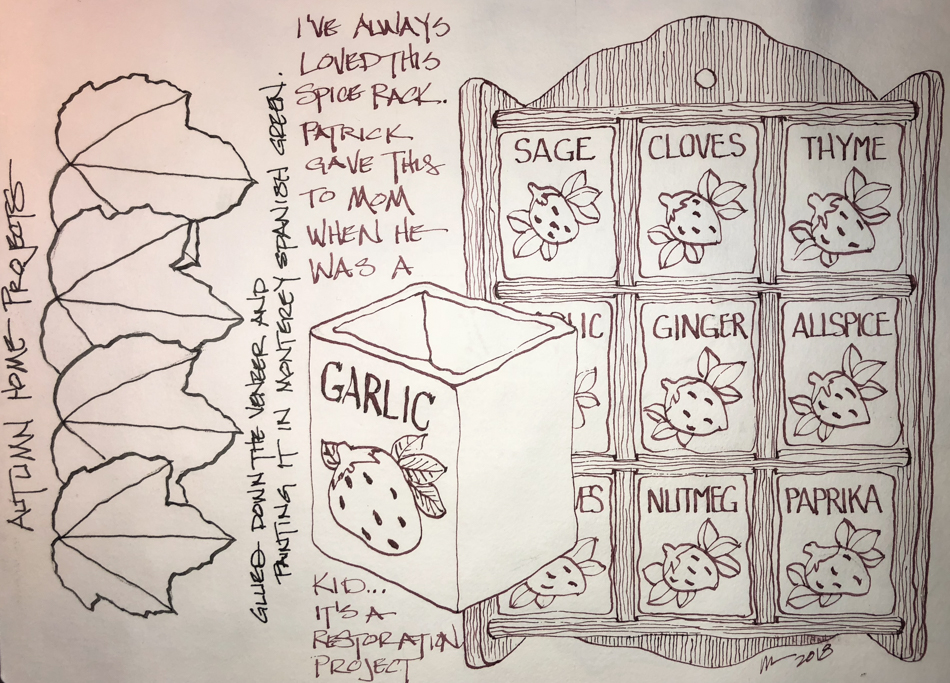 AUTUMN HOME PROJECTS
GLUED DOWN THE VENEER AND
PAINTING IT IN MONTEREY SPANISH GREEN.
I'VE ALWAYS
LOVED THIS
SPICE RACK.
PATRICK
GAVE THIS
TO MOM
WHEN HE
WAS A
KID...
IT'S A
RESTORATION
PROJECT
SAGE
CLOVES
THYME
GARLIC
LIC
GINGER
ALLSPICE
ES
NUTMEG
PAPRIKA
2018